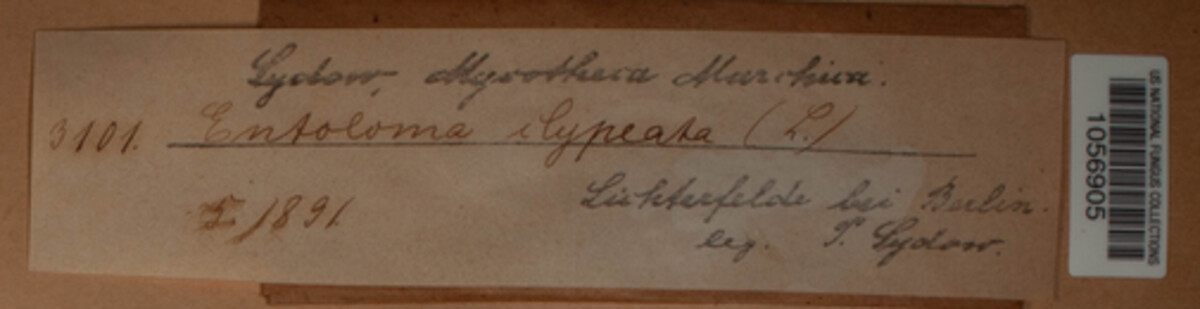 Sydow, Mycotheca Marchica.
3101. Entoloma clypeata (L.)
5/1891. Lichterfelde bei Berlin.
leg. P. Sydow.
US NATIONAL FUNGUS COLLECTIONS
1056905